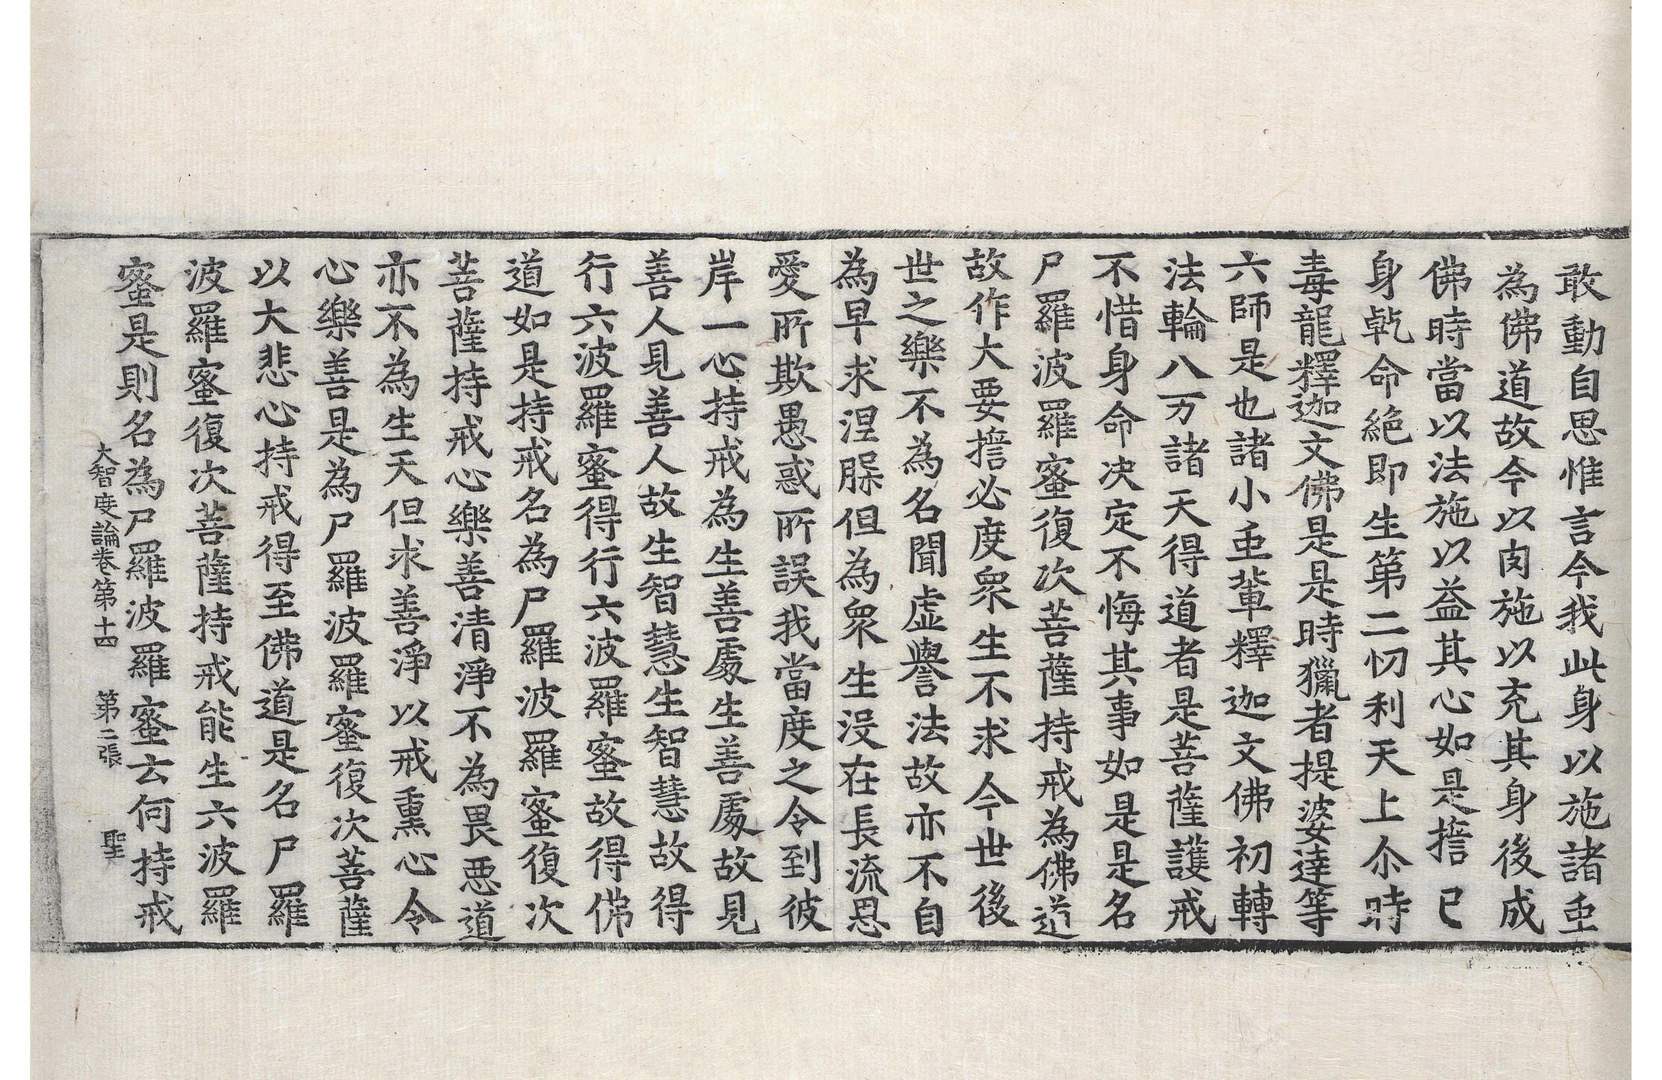 敢動自思惟言今我此身以施諸虫
為佛道故今以肉施以充其身後成
佛時當以法施以益其心如是擔已
身乹命絶即生第二忉利天上尒時
毒龍釋迦文佛是是時獵者提婆達等
六師是也諸小虫輩釋迦文佛初轉
法輪八万諸天得道者是菩薩護戒
不惜身命決定不悔其事如是是名
尸羅波羅蜜復次菩薩持戒為佛道
故作大要擔必度衆生不求今世後
世之樂不為名聞虛譽法故亦不自
為早求涅脲但為衆生没在長流恩
愛所欺愚惑所誤我當度之令到彼
岸一心持戒為生善處生善處故見
善人見善人故生智慧生智慧故得
行六波羅蜜得行六波羅蜜故得佛
道如是持戒名為尸羅波羅蜜復次
菩薩持戒心樂善清淨不為畏惡道
亦不為生天但求善淨以戒熏心令
心樂善是為尸羅波羅蜜復次菩薩
以大悲心持戒得至佛道是名尸羅
波羅蜜復次菩薩持戒能生六波羅
蜜是則名為尸羅波羅蜜云何持戒
大智度論卷第十四 第二張 聖